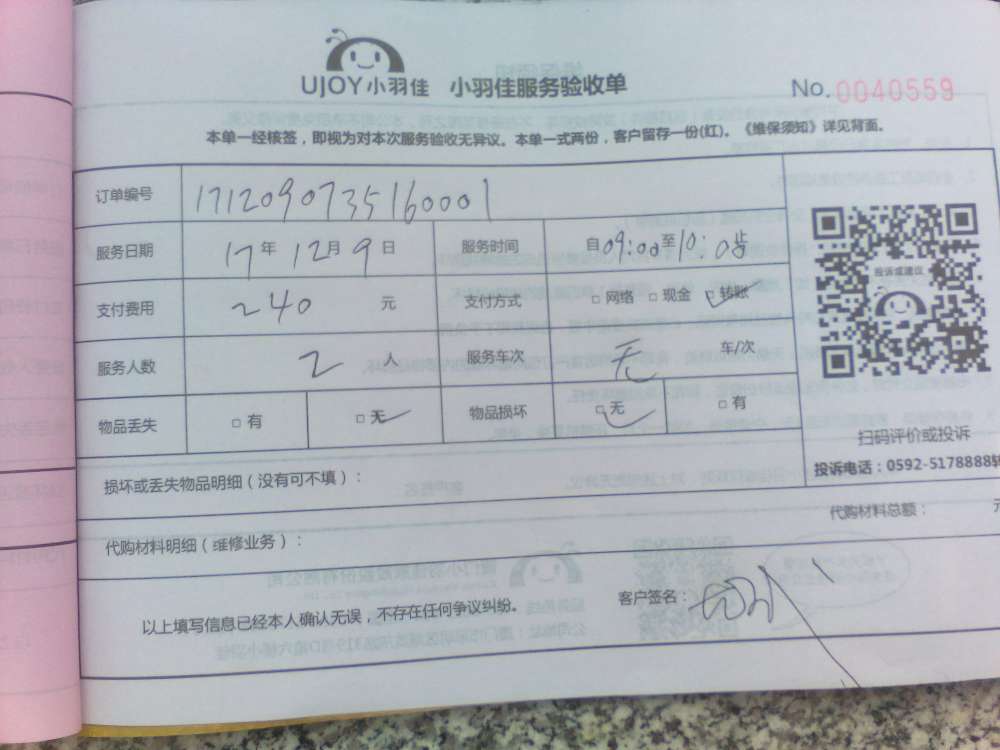 UJOY小羽佳 小羽佳服务验收单 No.0040559
本单一经核签，即视为对本次服务验收无异议。本单一式两份，客户留存一份(红)。《维保须知》详见背面。
订单编号 1712090735160001
服务日期 17年12月9日 服务时间 自09:00至10:00止
支付费用 240 元 支付方式 □网络 □现金 □转账
服务人数 2 人 服务车次 无 车/次
物品丢失 □有 □无 物品损坏 □无 □有
投诉或建议
扫码评价或投诉
投诉电话：0592-5178888转
损坏或丢失物品明细（没有可不填）：
代购材料明细（维修业务）： 代购材料总额： 元
以上填写信息已经本人确认无误，不存在任何争议纠纷。 客户签名：